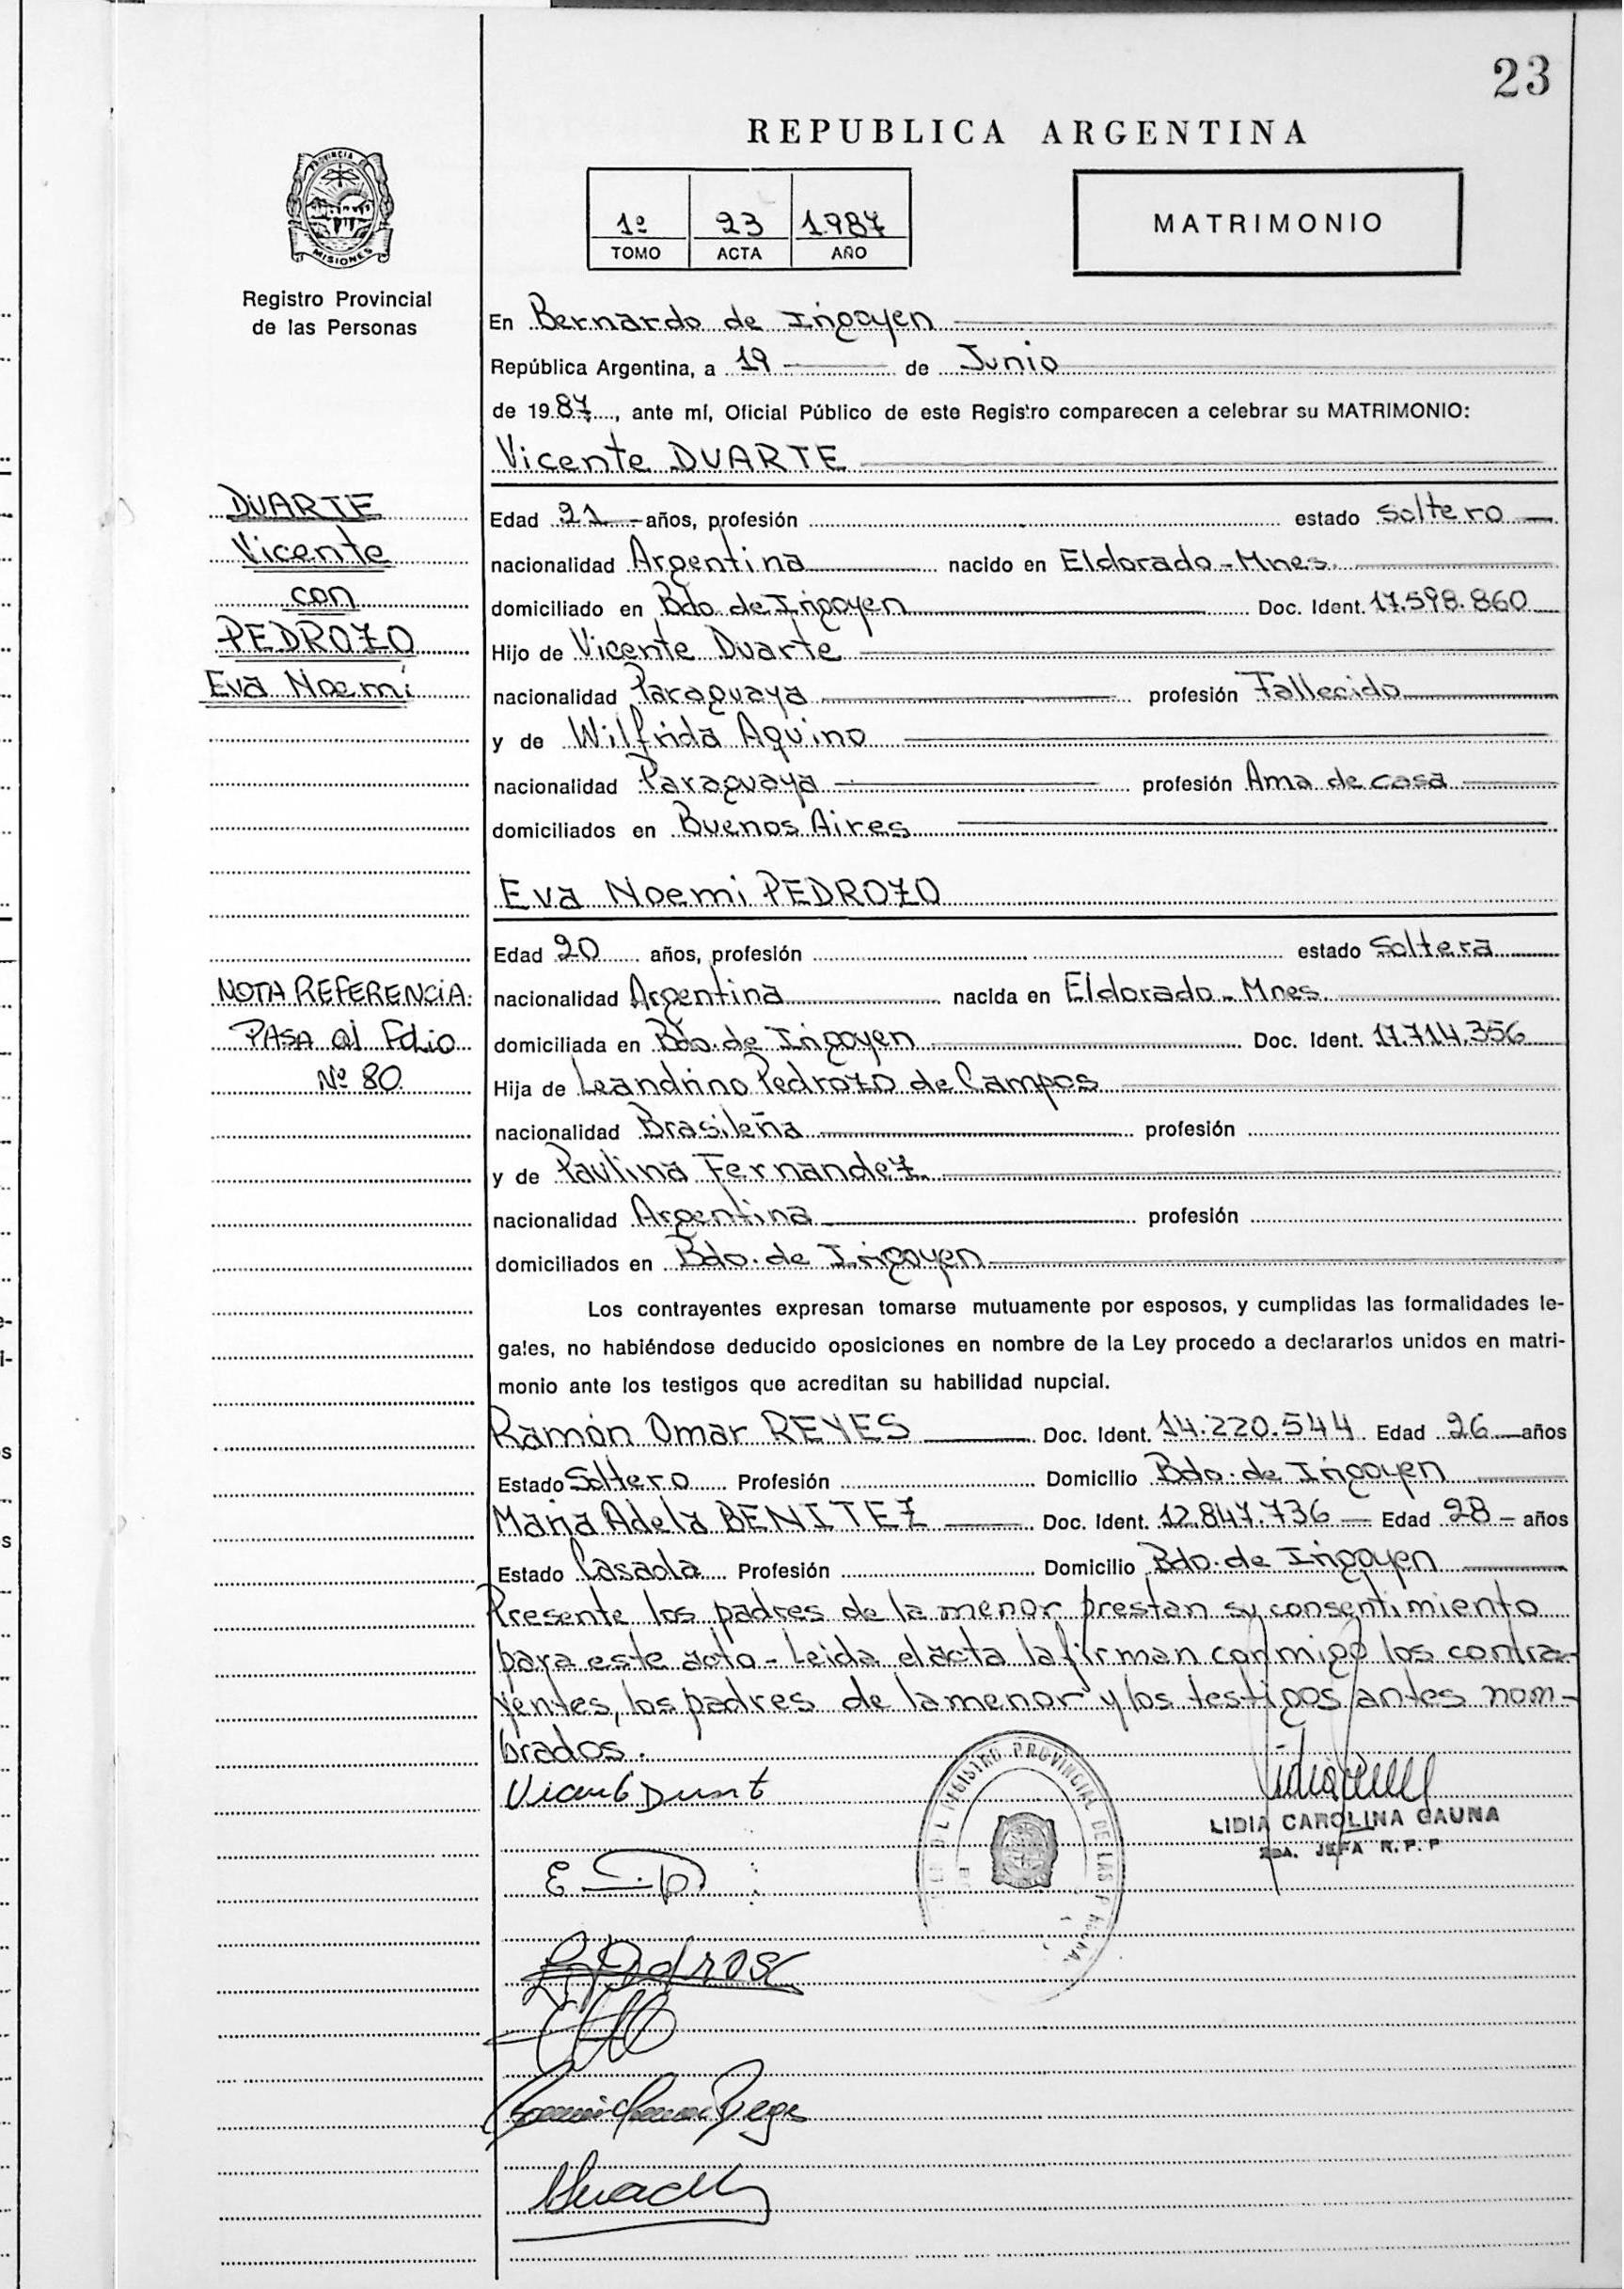 23
REPUBLICA ARGENTINA
PROVINCIA
MISIONES
Registro Provincial
de las Personas
1º 23 1.987
TOMO ACTA AÑO
MATRIMONIO
En Bernardo de Irigoyen
República Argentina, a 19 de Junio
de 19 87, ante mí, Oficial Público de este Registro comparecen a celebrar su MATRIMONIO:
Vicente DUARTE
DUARTE
Vicente
con
PEDROZO
Eva Noemi
Edad 21 años, profesión estado Soltero
nacionalidad Argentina nacido en Eldorado - Mnes.
domiciliado en Bdo. de Irigoyen Doc. Ident. 17.598.860
Hijo de Vicente Duarte
nacionalidad Paraguaya profesión Fallecido
y de Wilfrida Aquino
nacionalidad Paraguaya profesión Ama de casa
domiciliados en Buenos Aires
Eva Noemi PEDROZO
Edad 20 años, profesión estado Soltera
nacionalidad Argentina nacida en Eldorado - Mnes.
domiciliada en Bdo. de Irigoyen Doc. Ident. 17.714.356
Hija de Leandrino Pedrozo de Campos
nacionalidad Brasileña profesión
y de Paulina Fernandez
nacionalidad Argentina profesión
domiciliados en Bdo. de Irigoyen
NOTA REFERENCIA:
PASA al Folio
Nº 80
Los contrayentes expresan tomarse mutuamente por esposos, y cumplidas las formalidades le-
gales, no habiéndose deducido oposiciones en nombre de la Ley procedo a declararlos unidos en matri-
monio ante los testigos que acreditan su habilidad nupcial.
Ramón Omar REYES Doc. Ident. 14.220.544 Edad 26 años
Estado Soltero Profesión Domicilio Bdo. de Irigoyen
Maria Adela BENITEZ Doc. Ident. 12.847.736 Edad 28 años
Estado Casada Profesión Domicilio Bdo. de Irigoyen
Presente los padres de la menor prestan su consentimiento
para este acto - Leida el acta la firman conmigo los contra-
yentes, los padres de la menor y los testigos antes nom-
brados.
LIDIA CAROLINA GAUNA
2DA. JEFA R. P. P
REGISTRO PROVINCIAL DE LAS P